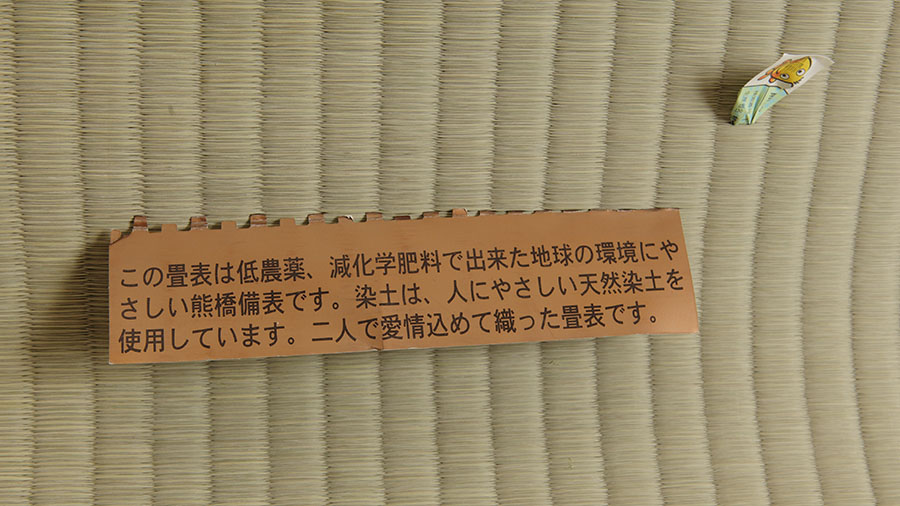 この畳表は低農薬、減化学肥料で出来た地球の環境にや
さしい熊橋備表です。染土は、人にやさしい天然染土を
使用しています。二人で愛情込めて織った畳表です。